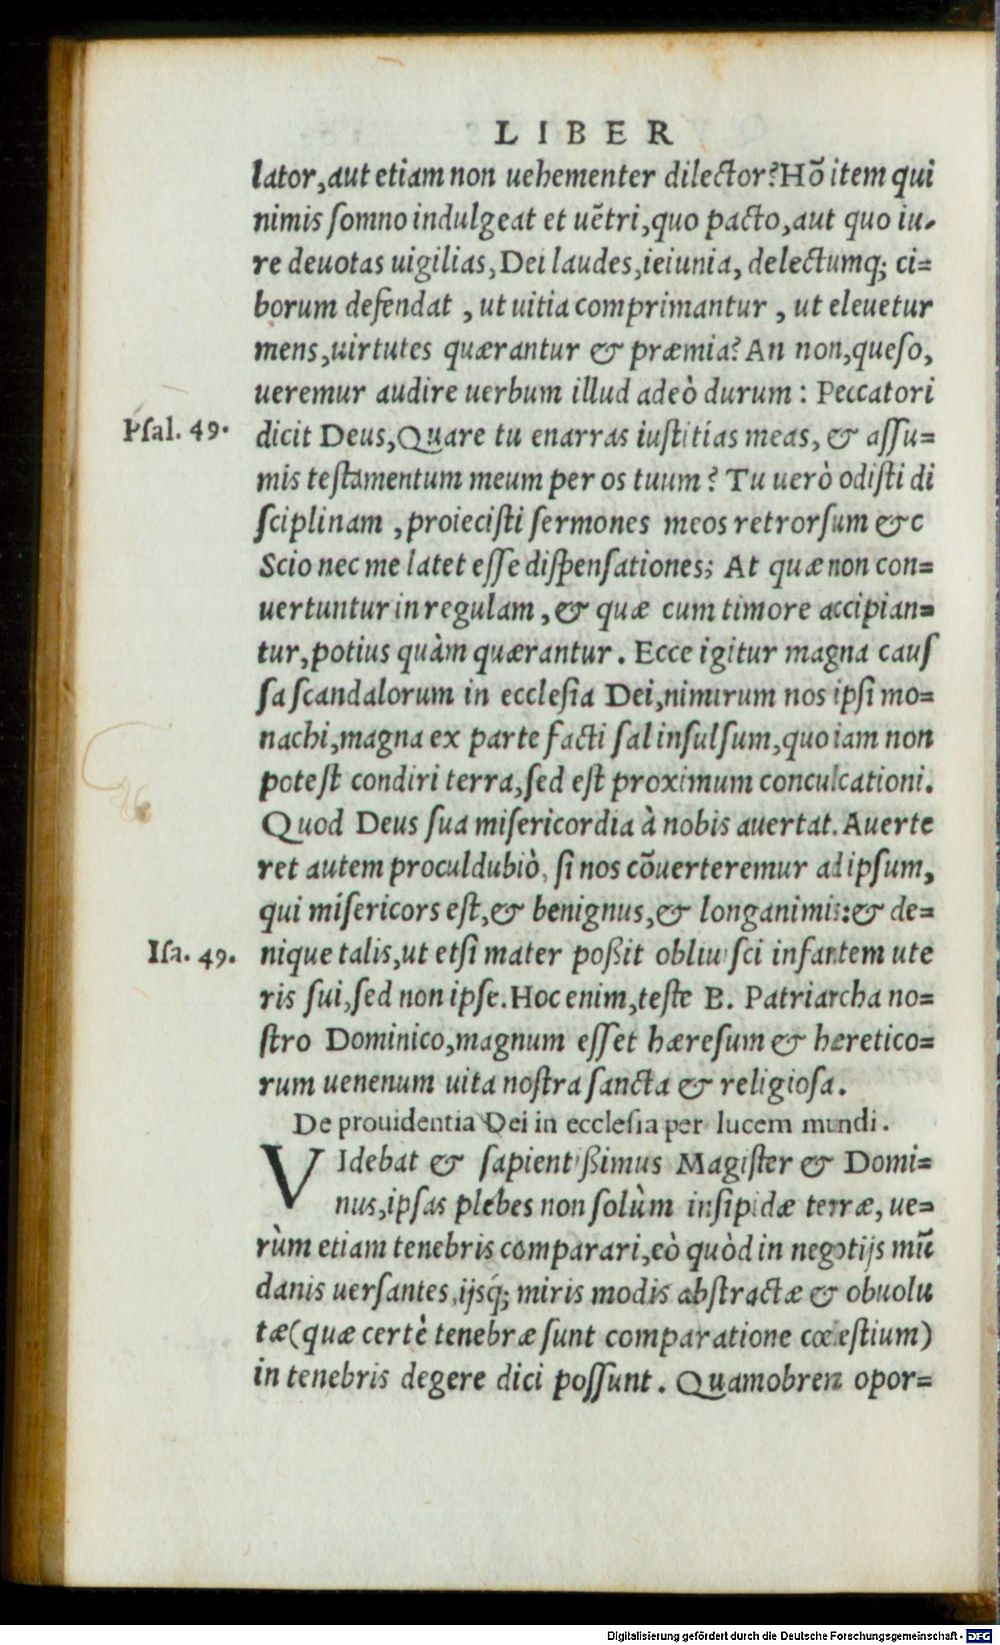 LIBER
lator, aut etiam non uehementer dilector? Hõ item qui
nimis ſomno indulgeat et uẽtri, quo pacto, aut quo iu-
re deuotas uigilias, Dei laudes, ieiunia, delectumq; ci=
borum defendat, ut uitia comprimantur, ut eleuetur
mens, uirtutes quærantur & præmia? An non, queſo,
ueremur audire uerbum illud adeò durum: Peccatori
Pſal. 49.
dicit Deus, Quare tu enarras iuſtitias meas, & aſſu=
mis teſtamentum meum per os tuum? Tu uerò odiſti di
ſciplinam, proieciſti ſermones meos retrorſum &c
Scio nec me latet eſſe diſpenſationes; At quæ non con=
uertuntur in regulam, & quæ cum timore accipian=
tur, potius quàm quærantur. Ecce igitur magna cauſ
ſa ſcandalorum in eccleſia Dei, nimirum nos ipſi mo=
nachi, magna ex parte facti ſal inſulſum, quo iam non
poteſt condiri terra, ſed eſt proximum conculcationi.
Quod Deus ſua miſericordia à nobis auertat. Auerte
ret autem proculdubiò, ſi nos cõuerteremur ad ipſum,
qui miſericors eſt, & benignus, & longanimis: & de=
Iſa. 49.
nique talis, ut etſi mater poßit obliuiſci infantem ute
ris ſui, ſed non ipſe. Hoc enim, teſte B. Patriarcha no=
ſtro Dominico, magnum eſſet hæreſum & heretico=
rum uenenum uita noſtra ſancta & religioſa.
De prouidentia Dei in eccleſia per lucem mundi.
VIdebat & ſapientißimus Magiſter & Domi=
nus, ipſas plebes non ſolùm inſipidæ terræ, ue=
rùm etiam tenebris comparari, eò quòd in negotijs mũ
danis uerſantes, ijsq́; miris modis abſtractæ & obuolu
tæ (quæ certè tenebræ ſunt comparatione cœleſtium)
in tenebris degere dici poſſunt. Quamobrem opor=
Digitalisierung gefördert durch die Deutsche Forschungsgemeinschaft - DFG